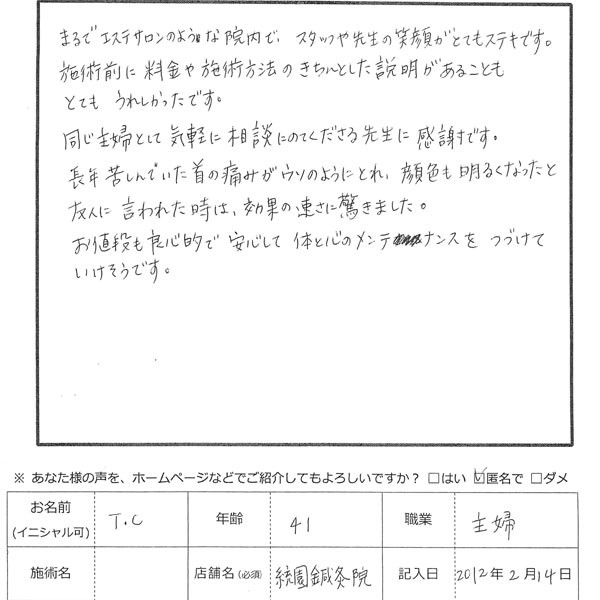 まるでエステサロンのような院内で、スタッフや先生の笑顔がとてもステキです。
施術前に料金や施術方法のきちんとした説明があることも
とても うれしかったです。
同じ主婦として気軽に相談にのてくださる先生に感謝です。
長年苦しんでいた首の痛みがウソのようにとれ、顔色も明るくなったと
友人に言われた時は、効果の速さに驚きました。
お値段も良心的で安心して体と心のメンテナンスをつづけて
いけそうです。
※ あなた様の声を、ホームページなどでご紹介してもよろしいですか？ □はい ☑匿名で □ダメ
お名前 (イニシャル可) T.C 年齢 41 職業 主婦
施術名 店舗名(必須) 統園鍼灸院 記入日 2012年2月14日